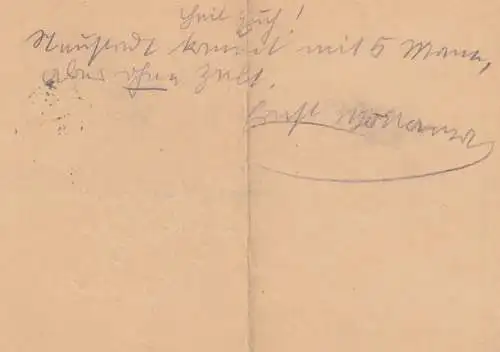 Heil Euch!
Neustadt kommt mit 5 Mann,
aber ohne Zelt.
Ernst